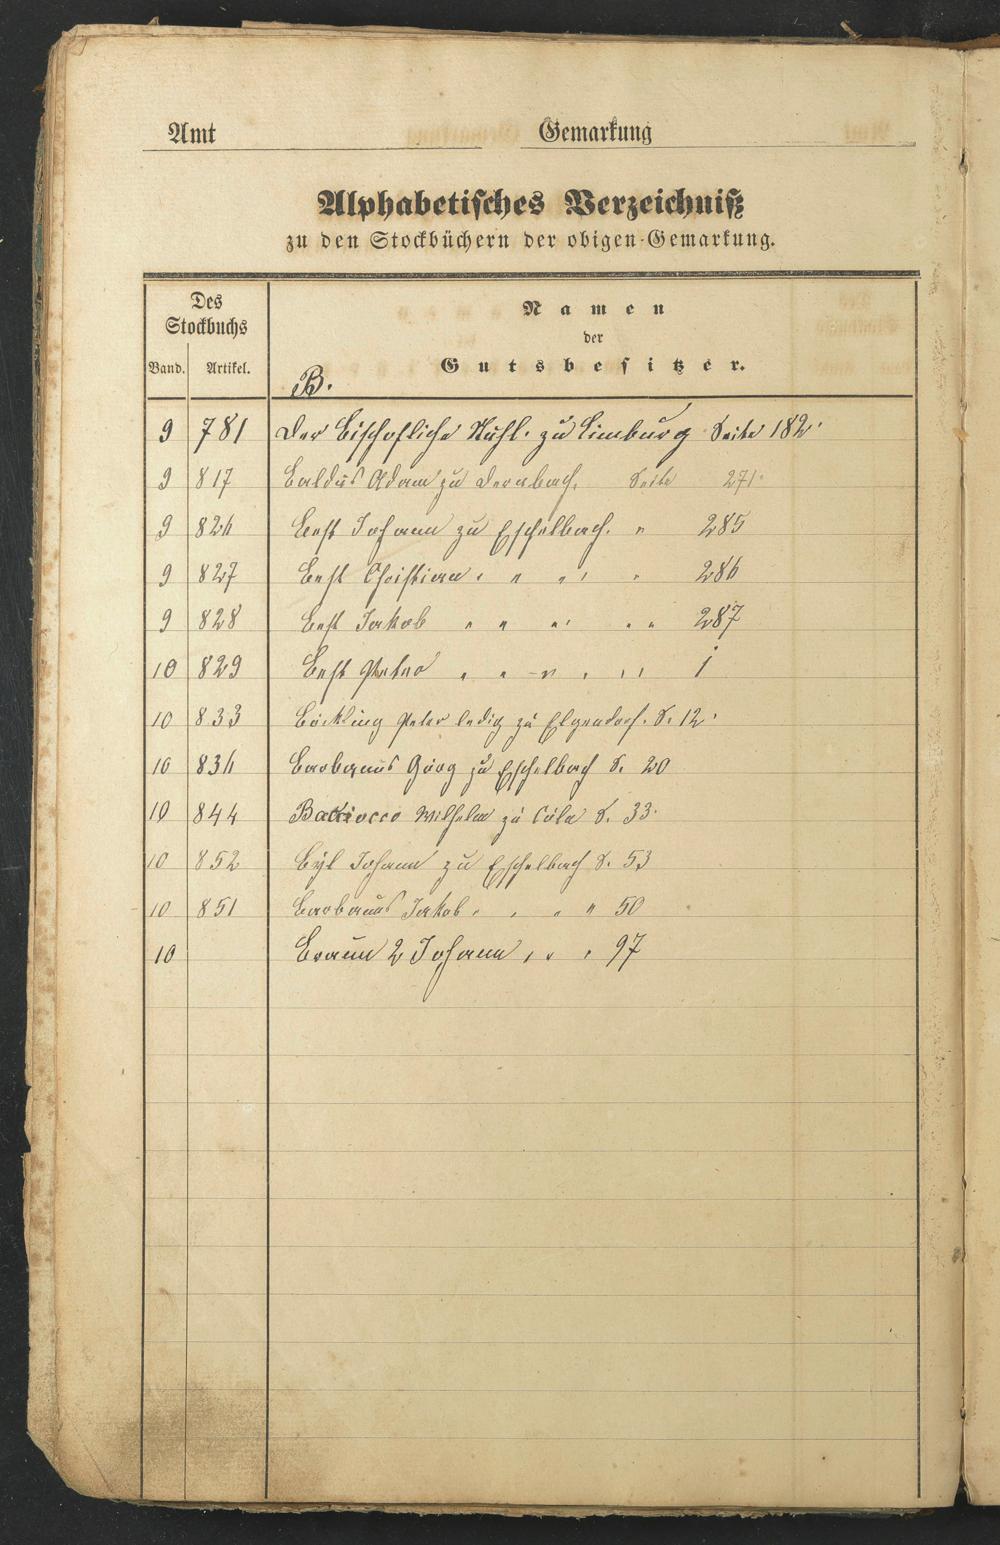 Amt Gemarkung
Alphabetisches Verzeichniß
zu den Stockbüchern der obigen Gemarkung.
Des
Stockbuchs
Band. Artikel.
Namen
der
Gutsbesitzer.
B.
9 781 Der Bischofliche Stuhl. zu Limburg Seite 182.
9 817 Baldus Adam zu Dernbach. Seite 271.
9 826 Best Johann zu Eschelbach. " 285
9 827 Best Christian " " " " 286
9 828 Best Jakob " " " " " 287
10 829 Best Peter " " " " " 1
10 833 Böckling Peter ledig zu Elgendorf. S. 12.
10 836 Barbanus Görg zu Eschelbach S. 20
10 844 Wilhelm zu Cöln S. 33.
10 852 Johann zu Eschelbach S. 53
10 851 Barbanus Jakob " " " " 50
10 Braun 2 Johann " " " 97